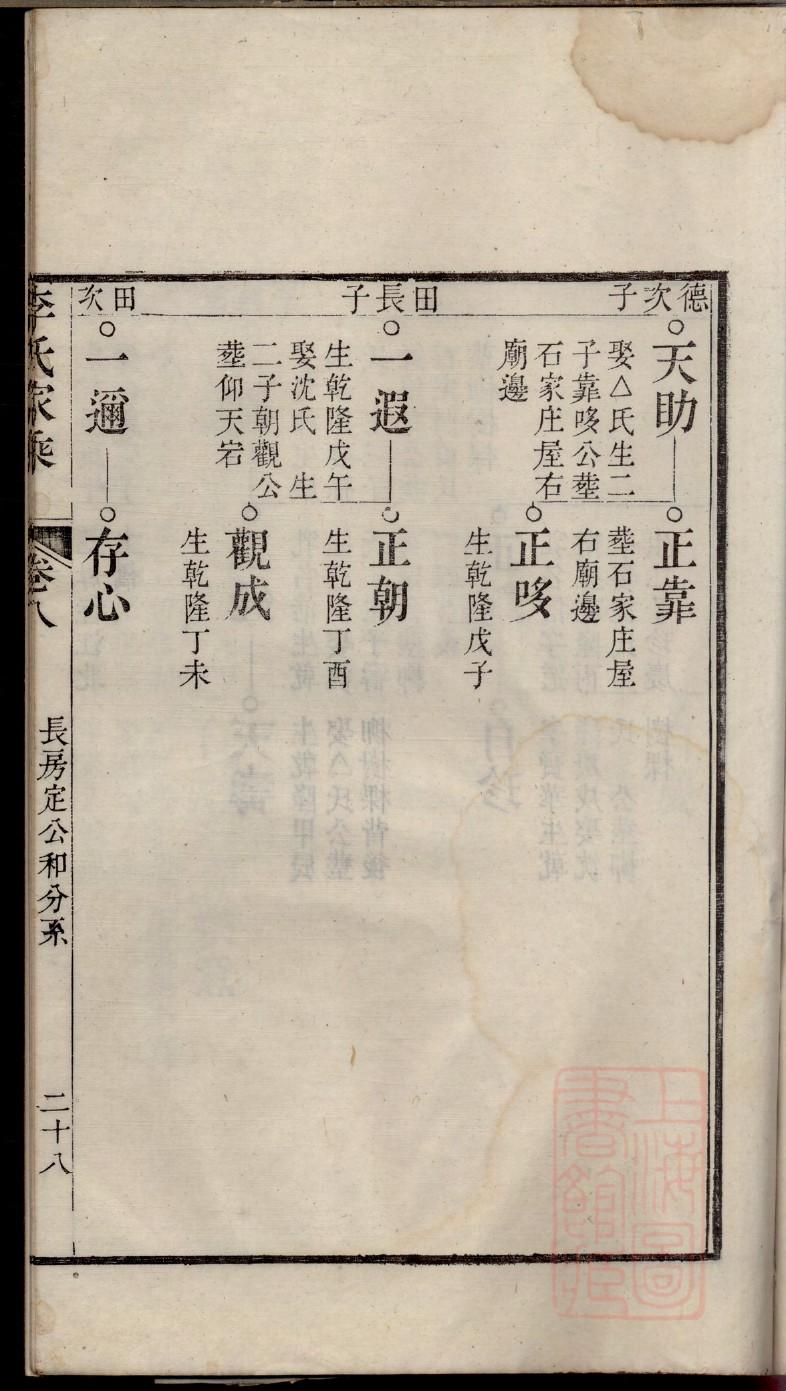 德次子
天助
娶△氏生二
子靠哆公塟
石家庄屋右
廟邊
正靠
塟石家庄屋
右廟邊
正哆
生乾隆戊子
田長子
一遐
生乾隆戊午
娶沈氏　生
二子朝觀公
塟仰天宕
正朝
生乾隆丁酉
觀成
生乾隆丁未
田次
一邇
存心
李氏家乘
卷八
長房定公和分系
二十八
上海圖書館藏